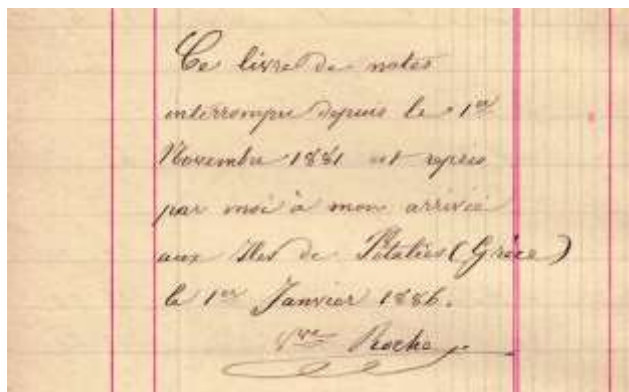 Ce livre de notes
interrompu depuis le 1er
Novembre 1881 est repris
par moi à mon arrivée
aux Iles de Pétalies (Grèce)
le 1er Janvier 1886.
Roche